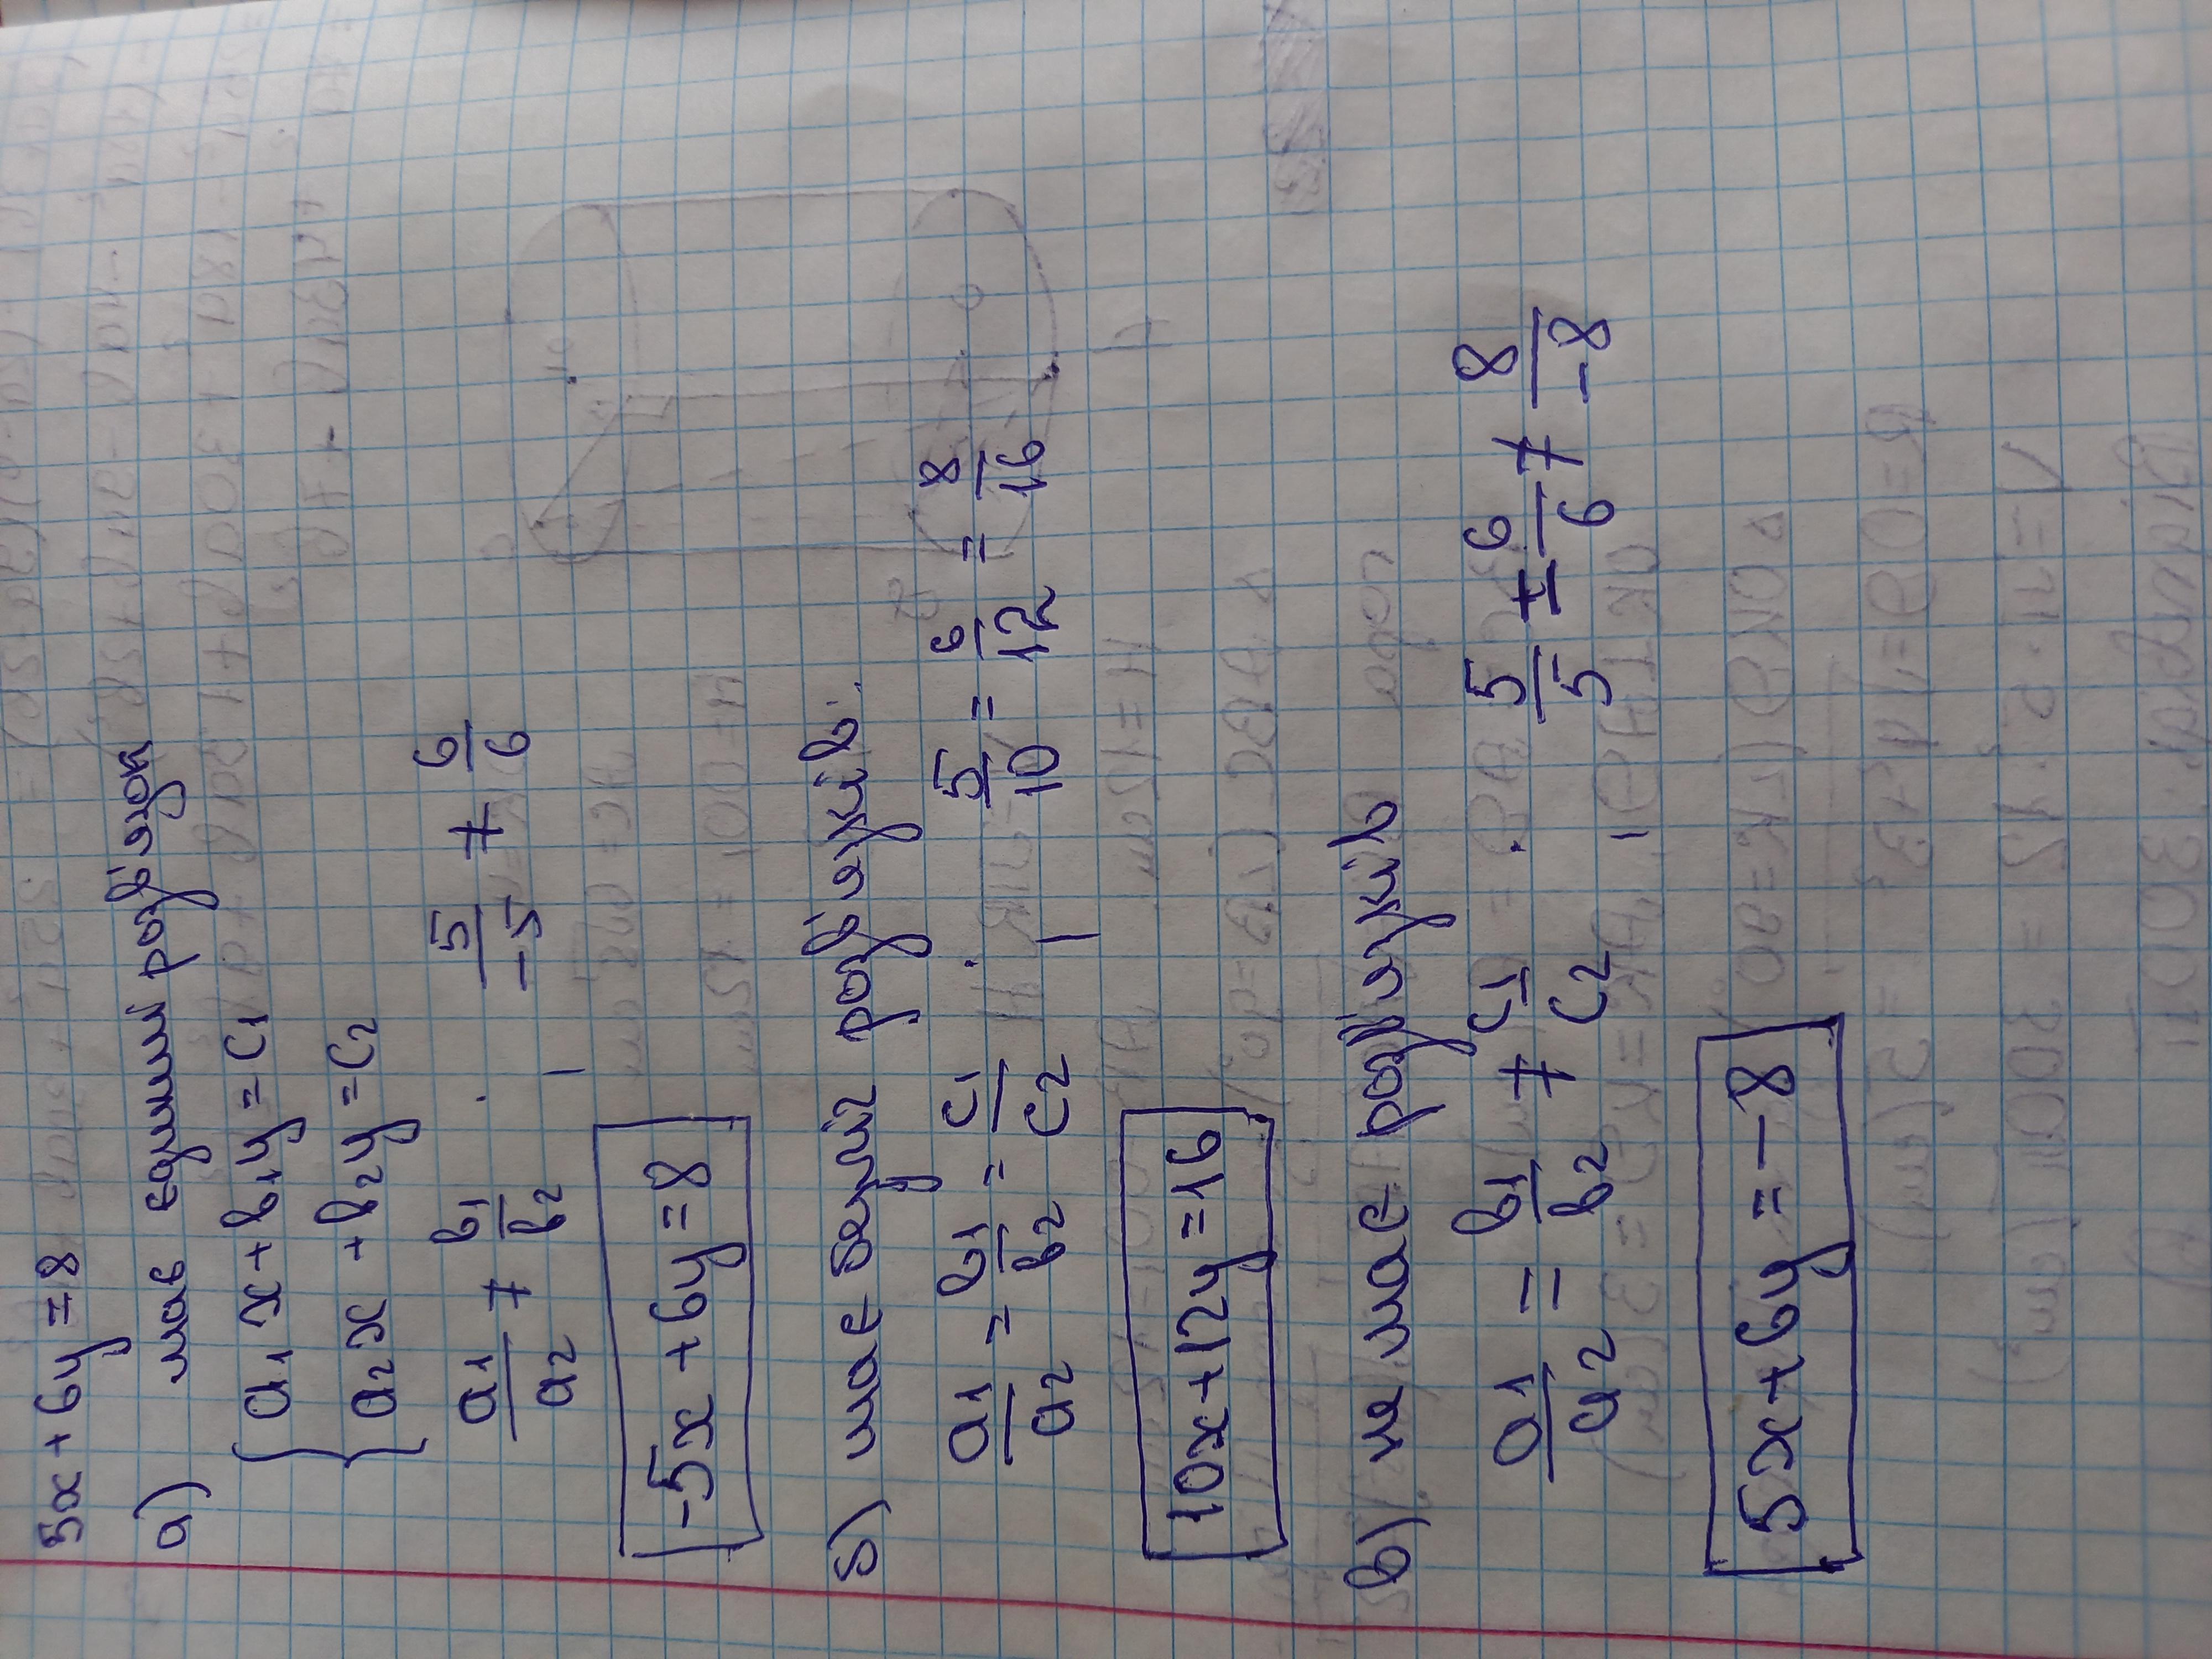 5x + 6y = 8
а) має єдиний розв'язок
{ a₁x + b₁y = c₁
a₂x + b₂y = c₂
a₁/a₂ ≠ b₁/b₂, 5/-5 ≠ 6/6
-5x + 6y = 8
б) має безліч розв'язків.
a₁/a₂ = b₁/b₂ = c₁/c₂; 5/10 = 6/12 = 8/16
10x + 12y = 16
в) не має розв'язків
a₁/a₂ = b₁/b₂ ≠ c₁/c₂; 5/5 = 6/6 ≠ 8/-8
5x + 6y = -8